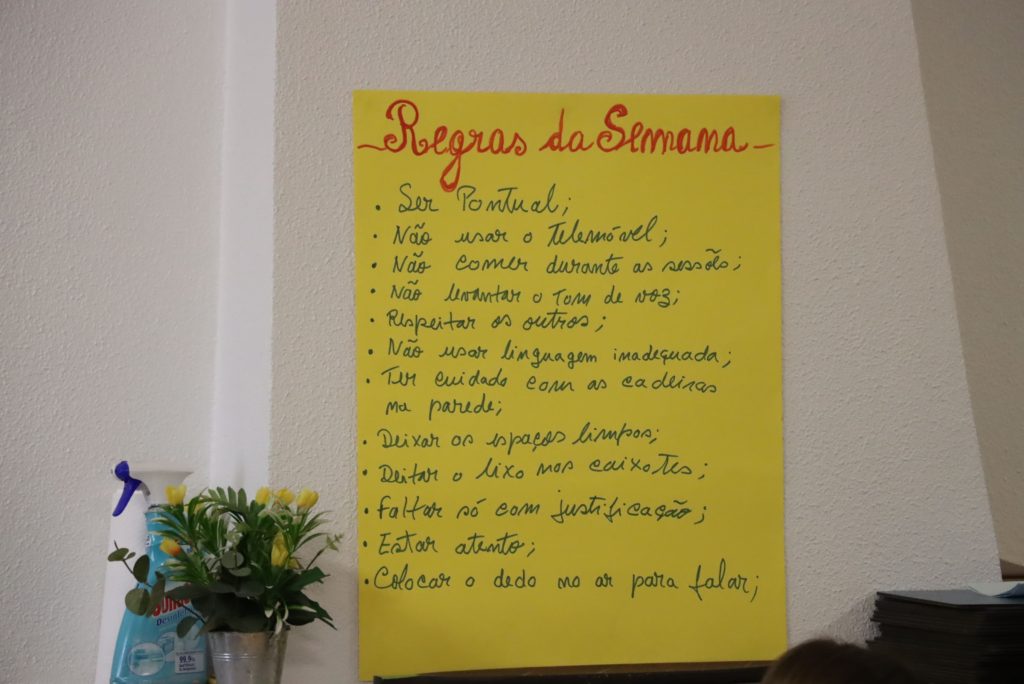 Regras da Semana
• Ser Pontual;
• Não usar o Telemóvel;
• Não comer durante as sessões;
• Não levantar o Tom de voz;
• Respeitar os outros;
• Não usar linguagem inadequada;
• Ter cuidado com as cadeiras
na parede;
• Deixar os espaços limpos;
• Deitar o lixo nos caixotes;
• Faltar só com justificação;
• Estar atento;
• Colocar o dedo no ar para falar;
99,9%